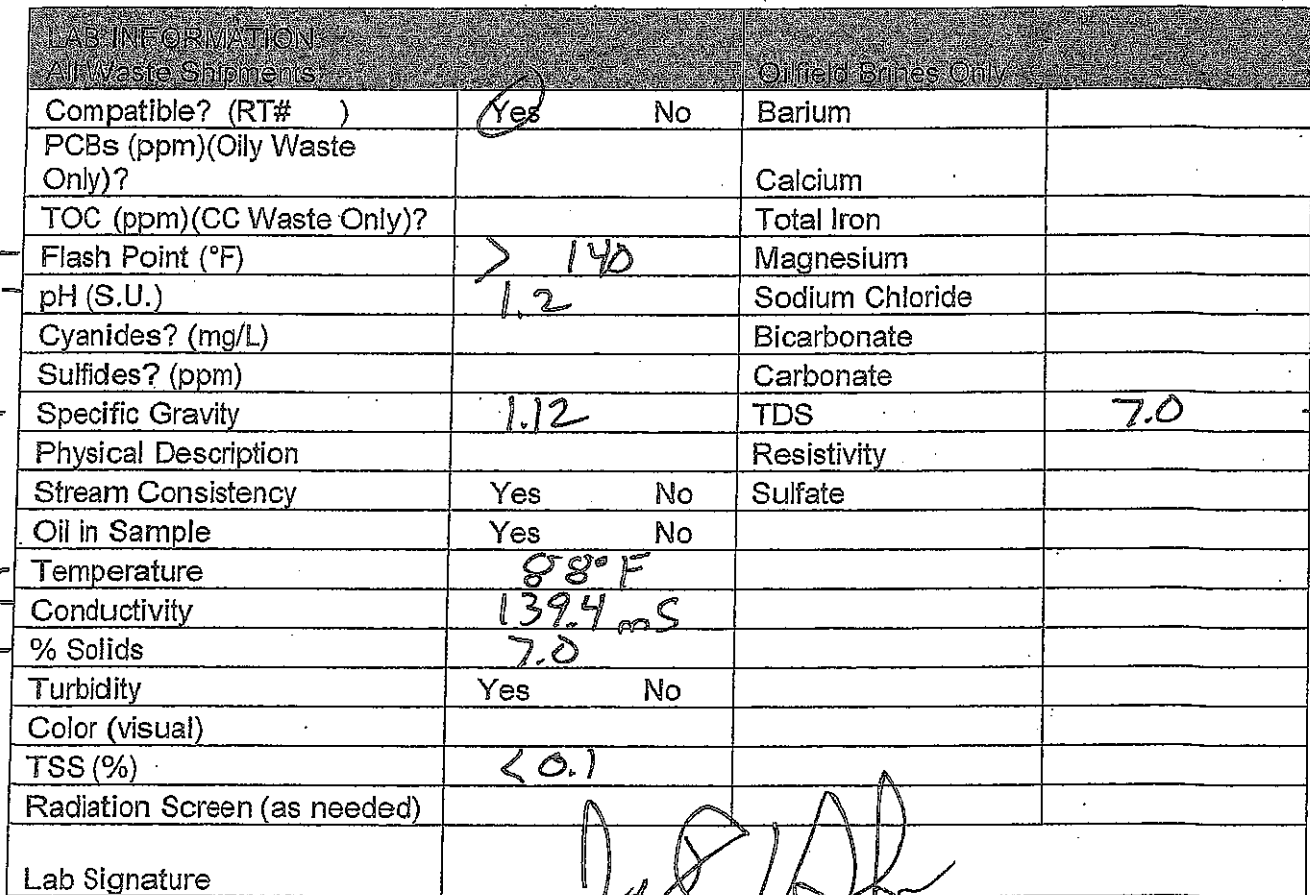 LAB INFORMATION
All Waste Shipments Oilfield Brines Only
Compatible? (RT# ) Yes No Barium
PCBs (ppm)(Oily Waste
Only)? Calcium
TOC (ppm)(CC Waste Only)? Total Iron
Flash Point (°F) > 140 Magnesium
pH (S.U.) 1.2 Sodium Chloride
Cyanides? (mg/L) Bicarbonate
Sulfides? (ppm) Carbonate
Specific Gravity 1.12 TDS 7.0
Physical Description Resistivity
Stream Consistency Yes No Sulfate
Oil in Sample Yes No
Temperature 88°F
Conductivity 139.4 mS
% Solids 7.0
Turbidity Yes No
Color (visual)
TSS (%) <0.1
Radiation Screen (as needed)
Lab Signature